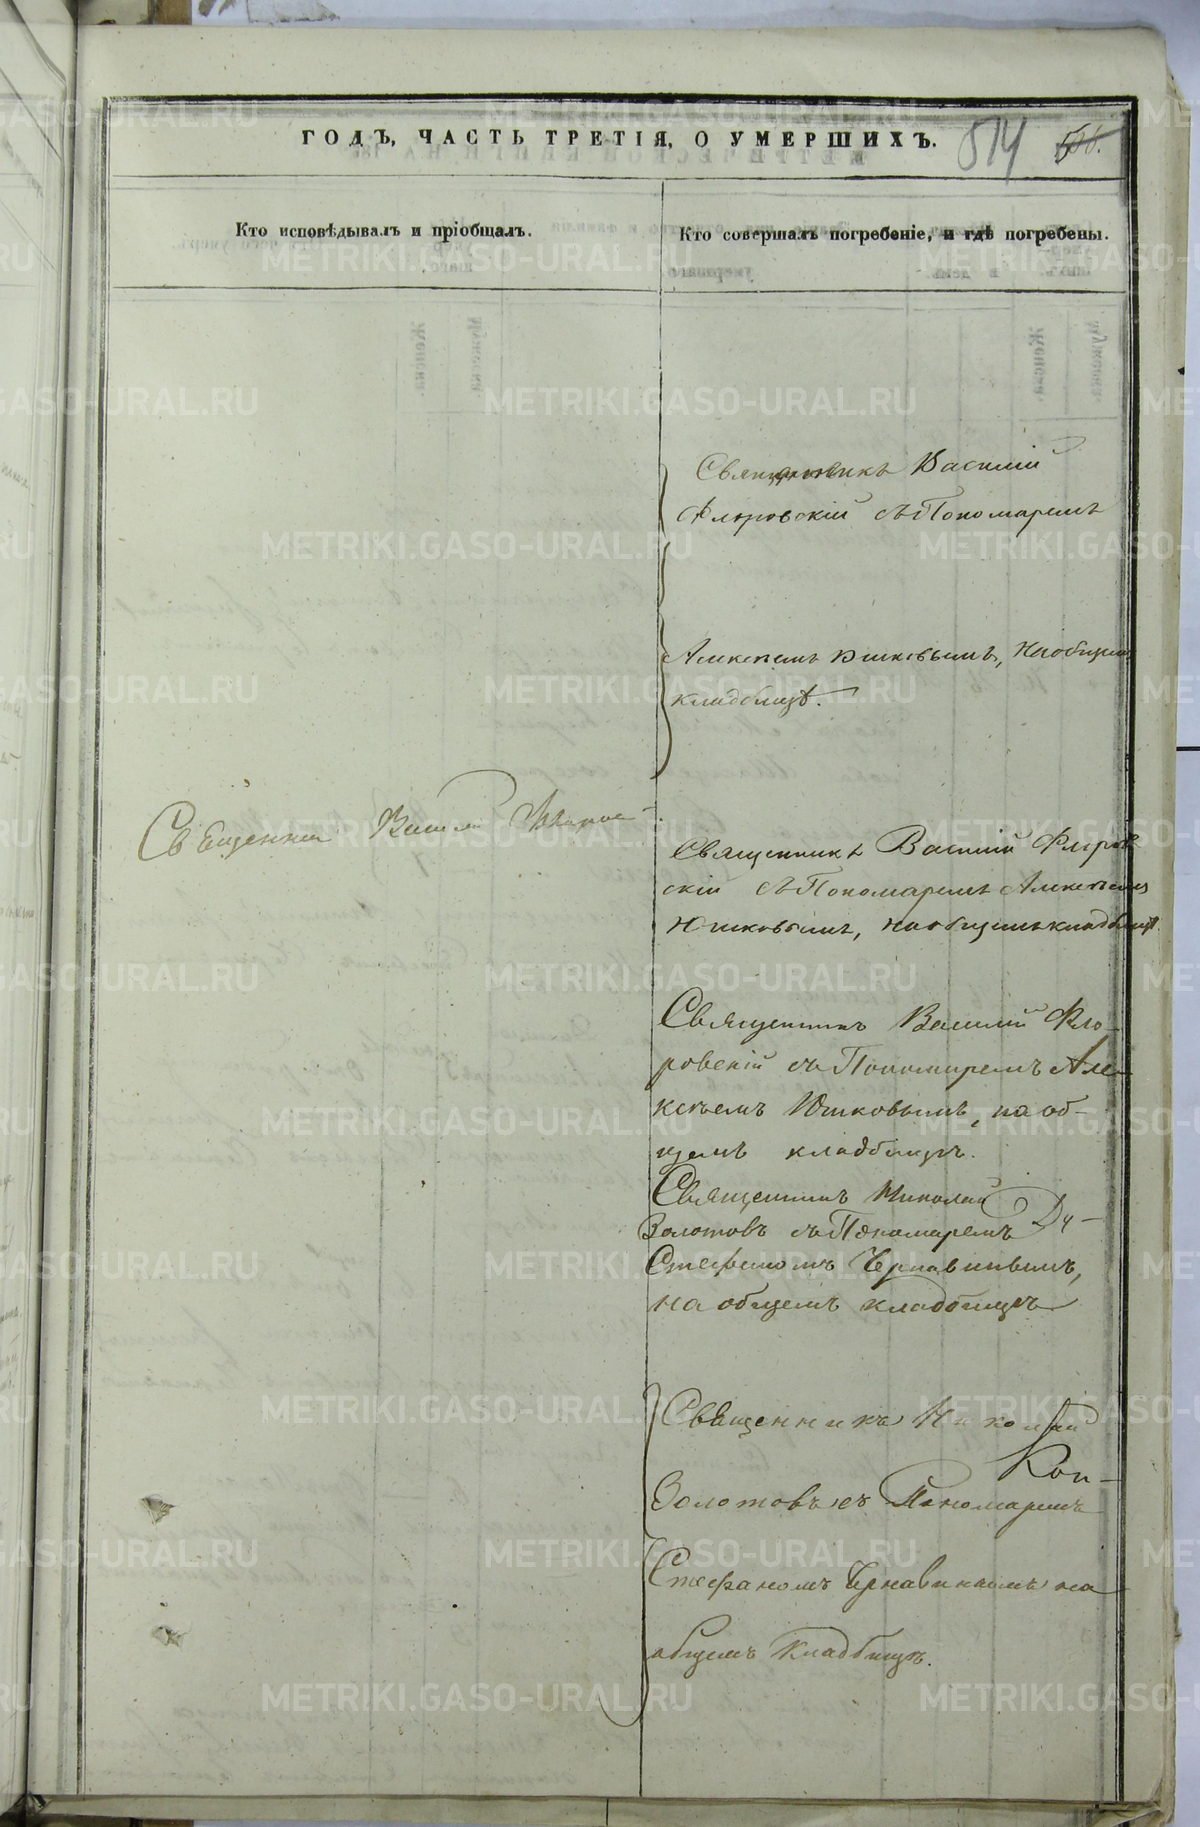 ГОДЪ, ЧАСТЬ ТРЕТІЯ, О УМЕРШИХЪ.
514
Кто исповѣдывалъ и пріобщалъ.
Кто совершалъ погребеніе, и гдѣ погребены.
Священникъ Василій
Флоровскій съ Пономаремъ
Алексѣемъ Юшковымъ, на общемъ
кладбищѣ.
Священникъ Василій Флоров
скій съ Пономаремъ Алексѣемъ
Юшковымъ, на общемъ кладбищѣ
Священникъ Василій Фло-
ровскій съ Пономаремъ Але-
ксѣемъ Юшковымъ, на об-
щемъ кладбищѣ.
Священникъ Николай
Золотовъ съ Пономаремъ
Стефаномъ Чернавинымъ,
на общемъ кладбищѣ
Священникъ Николай
Золотовъ съ Пономаремъ
Стефаномъ Чернавинымъ на
общемъ кладбищѣ.
Священникъ Василій
METRIKI.GASO-URAL.RU